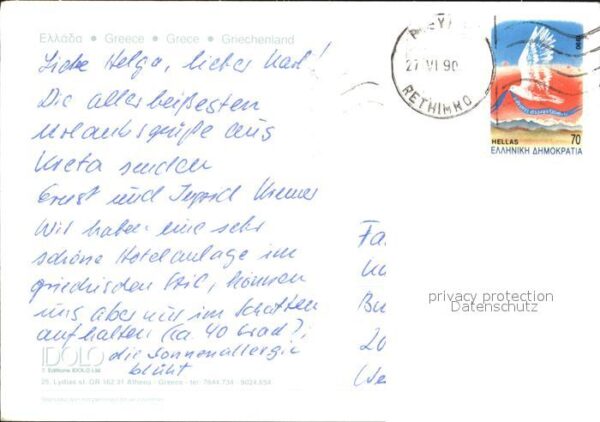 Ελλάδα • Greece • Grece • Griechenland
Liebe Helga, lieber Karl!
Die allerheißesten
Urlaubsgrüße aus
Kreta senden
Ernst und Ingrid Kremer
Wir haben eine sehr
schöne Hotelanlage im
griechischen Stil, können
uns aber nur im Schatten
aufhalten (ca 40 Grad?),
die Sonnenallergie
blüht
IDOLO
Editions IDOLO Ltd
25, Lydias st. GR 162 31 Athens - Greece - tel 7644.734 9024.654
27 VI 90
RETHIMNO
HELLAS 70
ΕΛΛΗΝΙΚΗ ΔΗΜΟΚΡΑΤΙΑ
Fa
Bu
20
We
privacy protection
Datenschutz